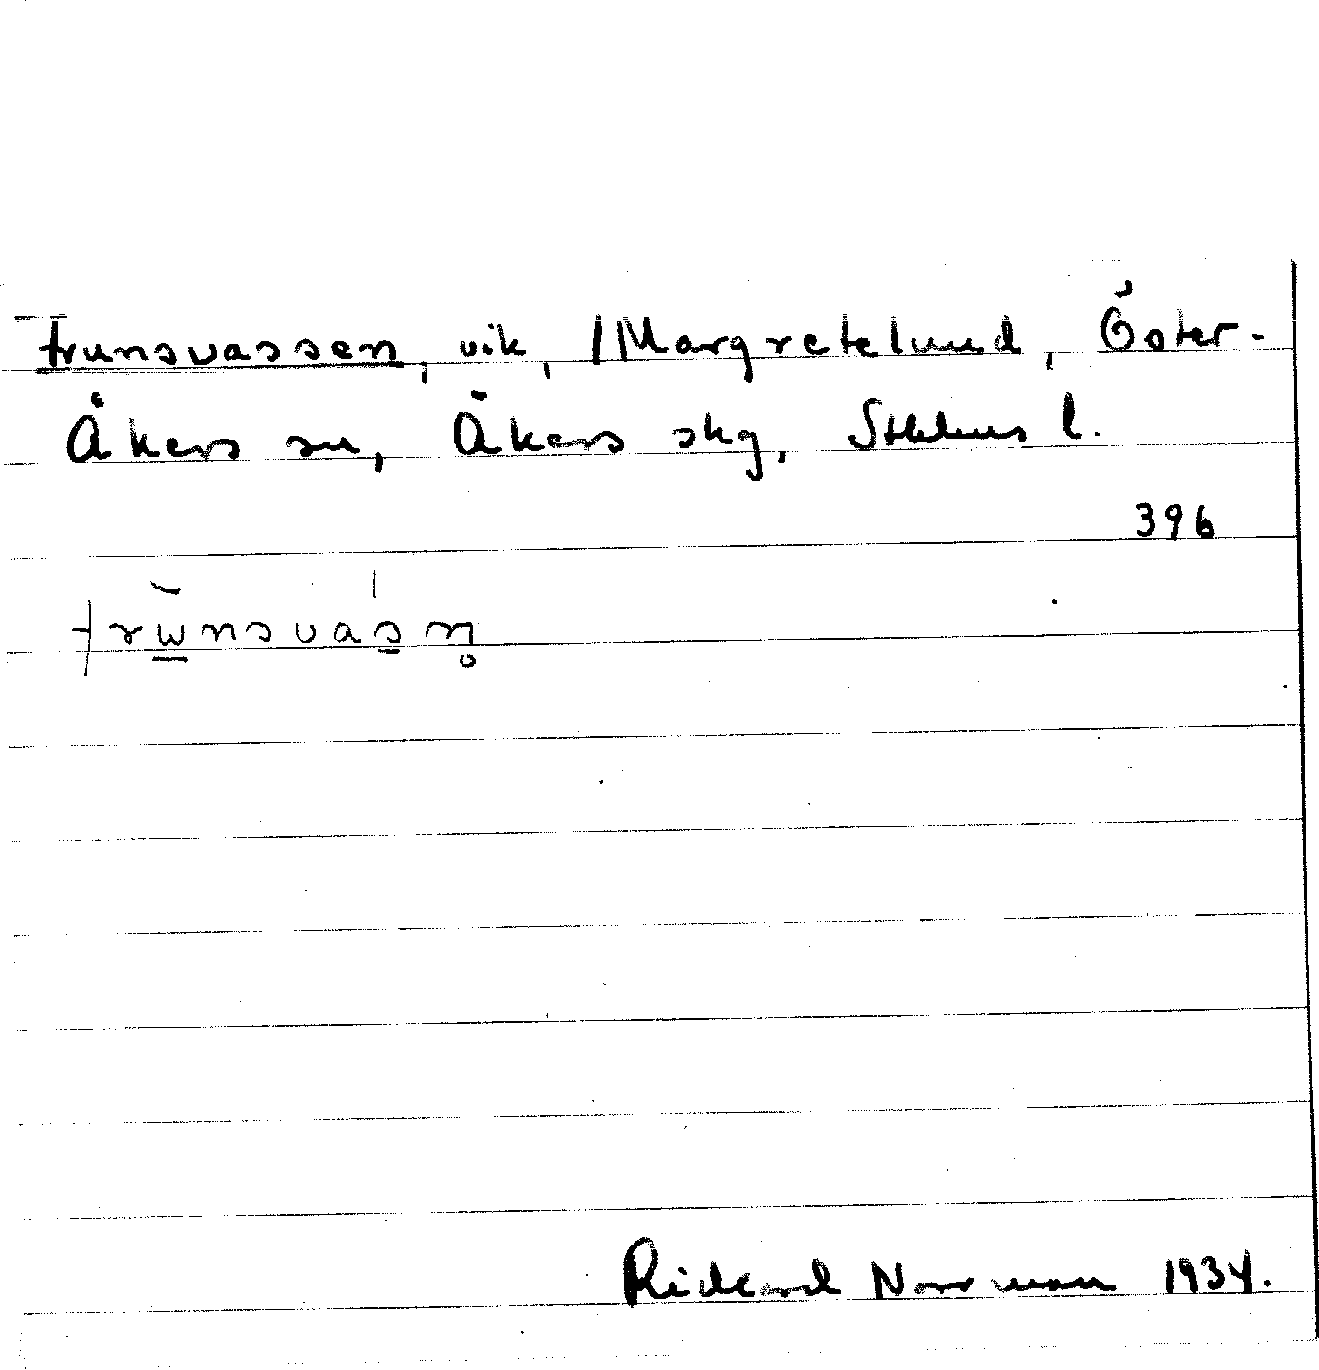 trunsvassen, vik, /Margretelund, Öster-
Åkers sn, Åkers skg, Sthlms l.
396
trunsvasn̥
Rickard Norrman 1934.